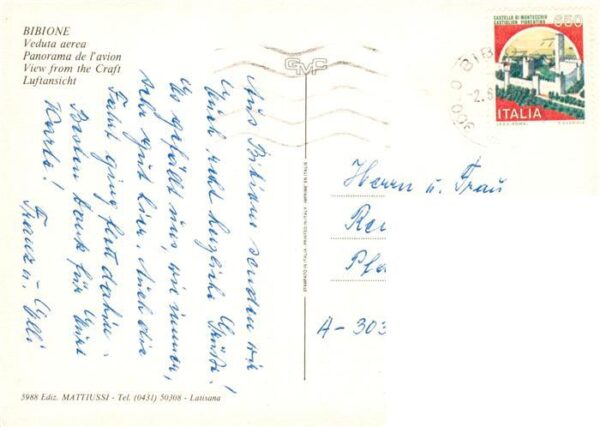 BIBIONE
Veduta aerea
Panorama de l'avion
View from the Craft
Luftansicht
Aus Bibione senden wir
Euch recht herzliche Grüße!
Es gefällt uns, wie immer,
sehr gut hier. Auch die
Fahrt ging flott dahin.
Besten Dank für Eure
Karte!
Franz u.
GMC
CASTELLO DI MONTECCHIO
CASTIGLION FIORENTINO
650
ITALIA
BIB
2.8
Herrn u. Frau
Re
Pfa
A-303
STAMPATO IN ITALIA - PRINTED IN ITALY - IMPRIMÉ EN ITALIE
5988 Ediz. MATTIUSSI - Tel. (0431) 50308 - Latisana